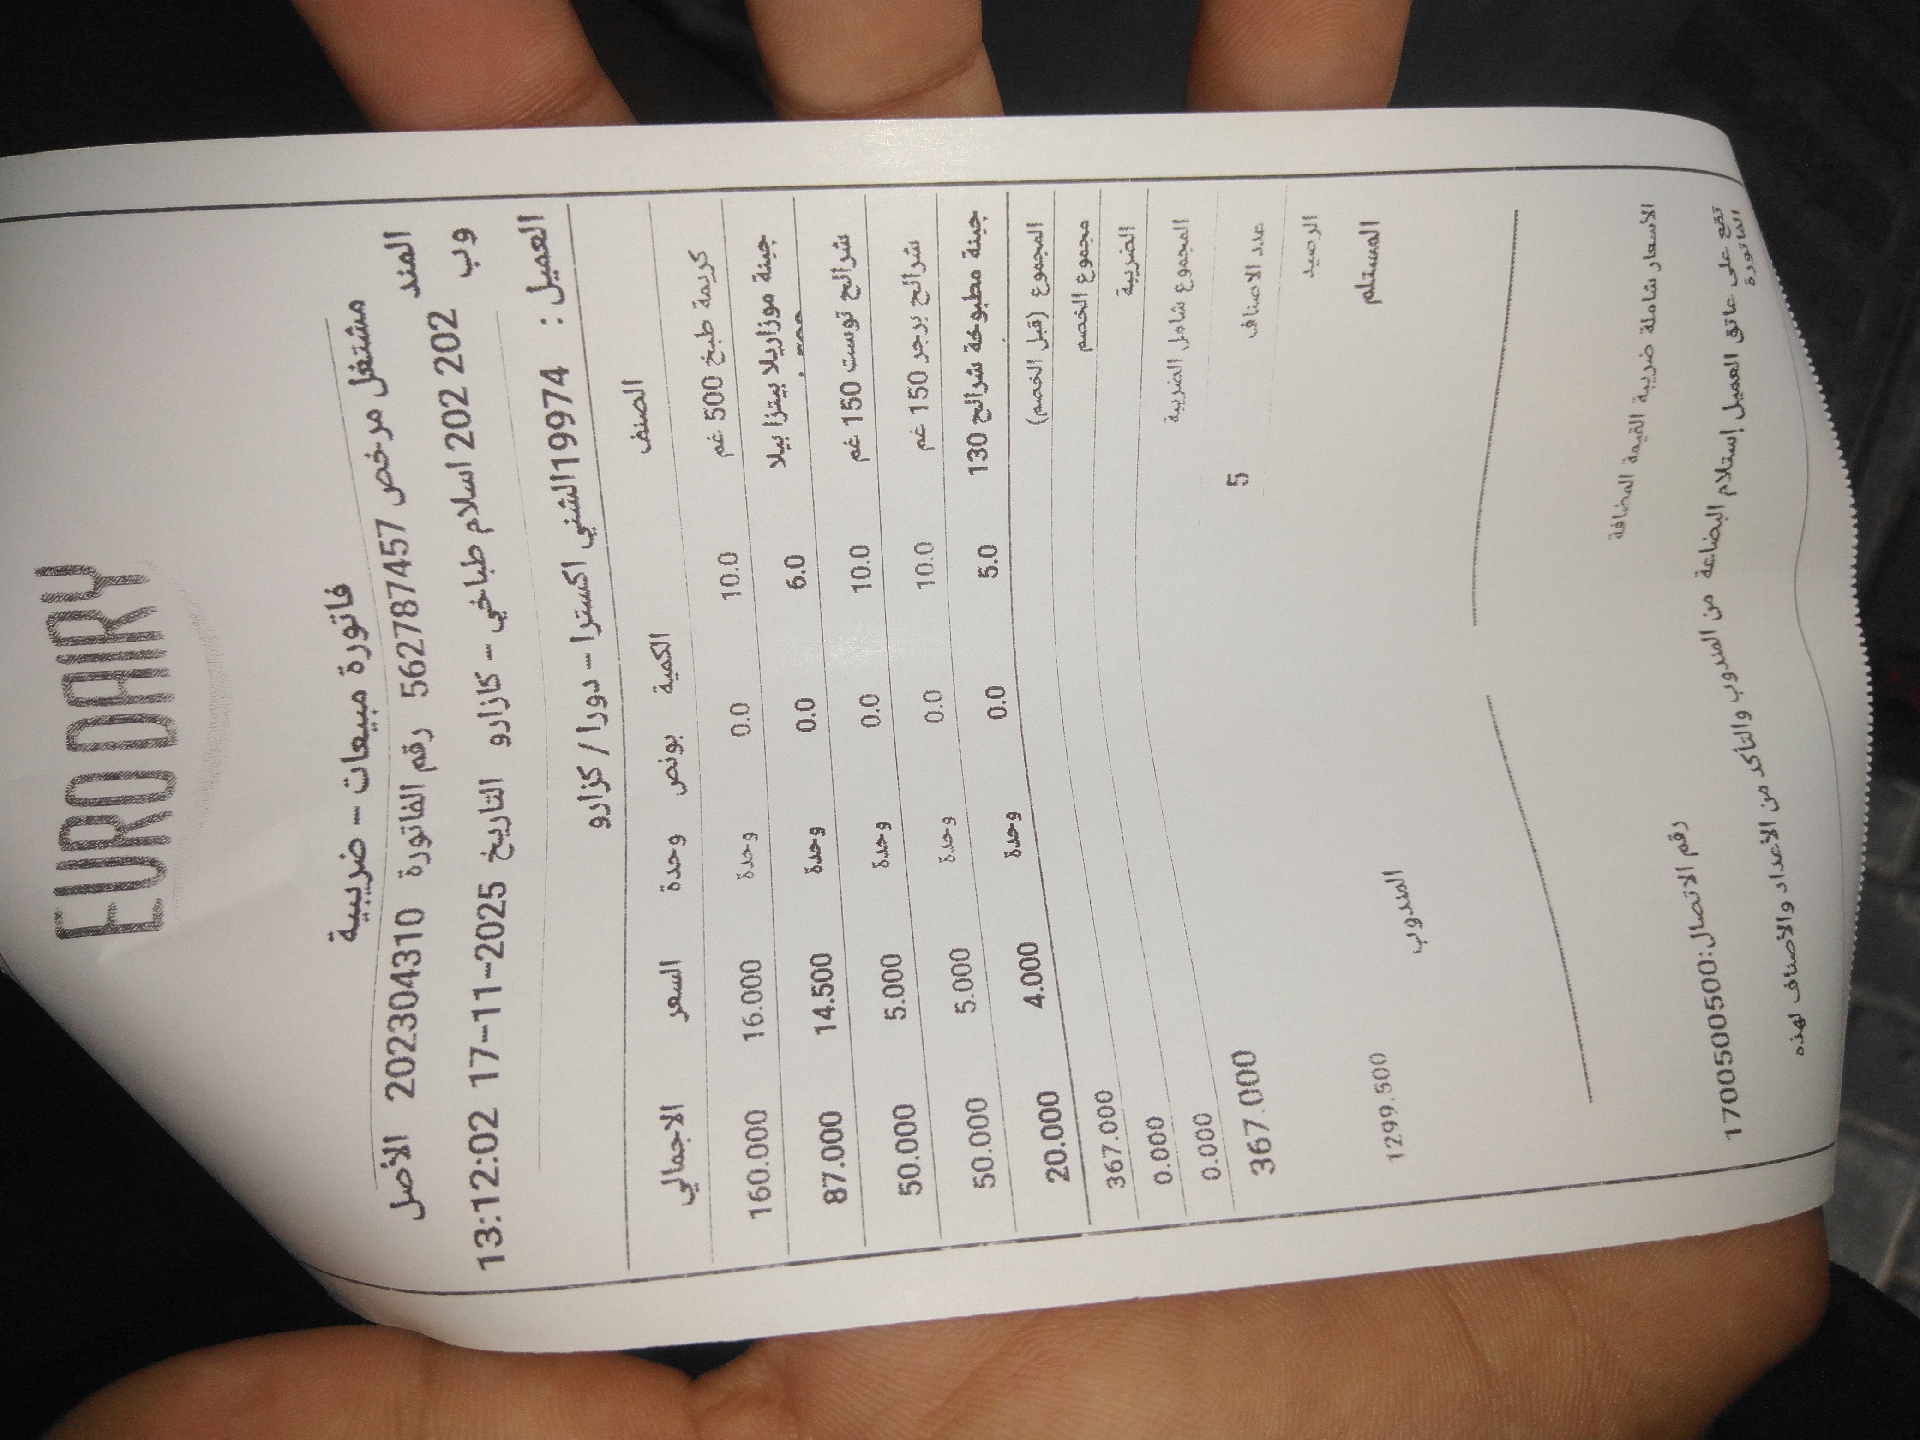 EURO DAIRY
فاتورة مبيعات - ضريبية
مشتغل مرخص 562787457 رقم الفاتورة 202304310 الأصل
المندوب 202 202 اسلام طباخي - كازارو التاريخ 17-11-2025 13:12:02
العميل : 19974الشني اكسترا - دورا / كزارو
الصنف الكمية بونص وحدة السعر الاجمالي
كريمة طبخ 500 غم 10.0 0.0 وحدة 16.000 160.000
جبنة موزاريلا بيتزا بيلا 6.0 0.0 وحدة 14.500 87.000
شرائح توست 150 غم 10.0 0.0 وحدة 5.000 50.000
شرائح برجر 150 غم 10.0 0.0 وحدة 5.000 50.000
جبنة مطبوخة شرائح 130 5.0 0.0 وحدة 4.000 20.000
المجموع (قبل الخصم) 367.000
مجموع الخصم 0.000
الضريبة 0.000
المجموع شامل الضريبة 367.000
عدد الاصناف 5
الرصيد 1299.500
المستلم المندوب
الأسعار شاملة ضريبة القيمة المضافة
رقم الاتصال:1700500500
تقع على عاتق العميل إستلام البضاعة من المندوب والتأكد من الأعداد والأصناف لهذه
الفاتورة